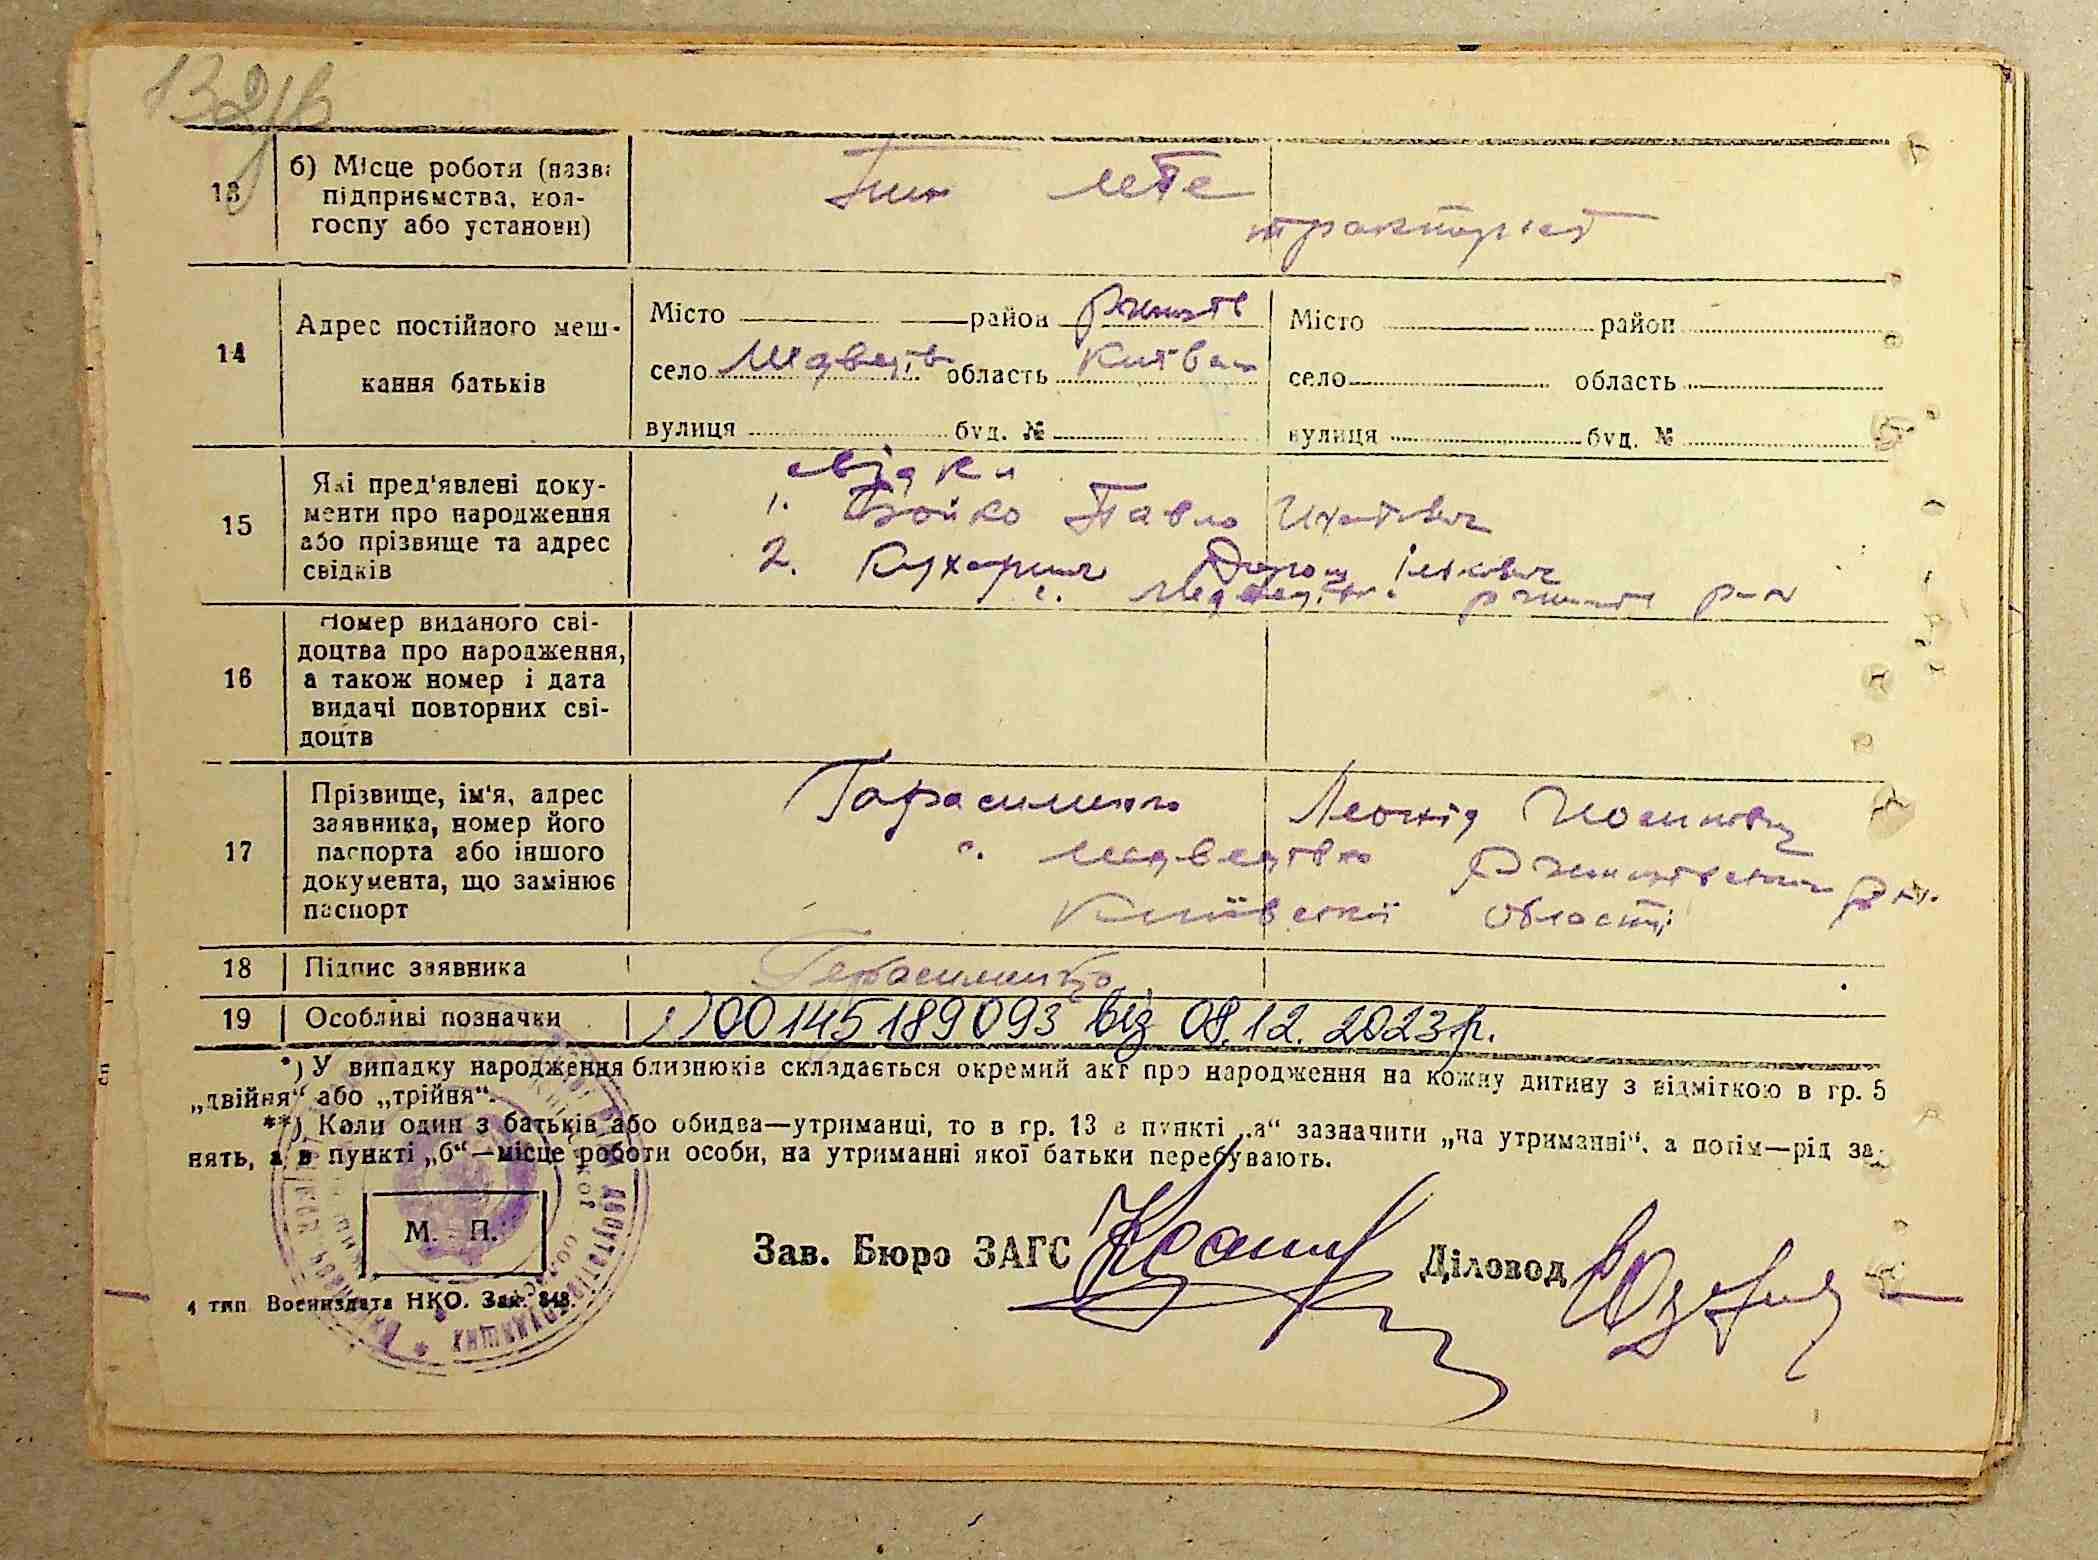 132 зв
13
б) Місце роботи (назва
підприємства, кол-
госпу або установи)
МТС
тракторист
14
Адрес постійного меш-
кання батьків
Місто район Ржищів
село Медведів область Київськ
вулиця буд. №
Місто район
село область
вулиця буд. №
15
Які пред'явлені доку-
менти про народження
або прізвище та адрес
свідків
свідки
1. Бойко Павло Ігнатович
2. Кухарчик Ількович
с. Медведівка Ржищів р-н
16
Номер виданого сві-
доцтва про народження,
а також номер і дата
видачі повторних сві-
доцтв
17
Прізвище, ім'я, адрес
заявника, номер його
паспорта або іншого
документа, що замінює
паспорт
Гарасименко Леонід Йосипович
с. Медведівка Ржищівського р-ну
Київської області
18
Підпис заявника
Герасименко
19
Особливі позначки
00145189093 від 08.12.2023р.
*) У випадку народження близнюків складається окремий акт про народження на кожну дитину з відміткою в гр. 5
„двійня“ або „трійня“.
**) Коли один з батьків або обидва—утриманці, то в гр. 13 в пункті „а“ зазначити „на утриманні“, а потім—рід за-
нять, а в пункті „б“—місце роботи особи, на утриманні якої батьки перебувають.
М. П.
Зав. Бюро ЗАГС
Діловод
4 тип. Воениздата НКО. Зак. 848.